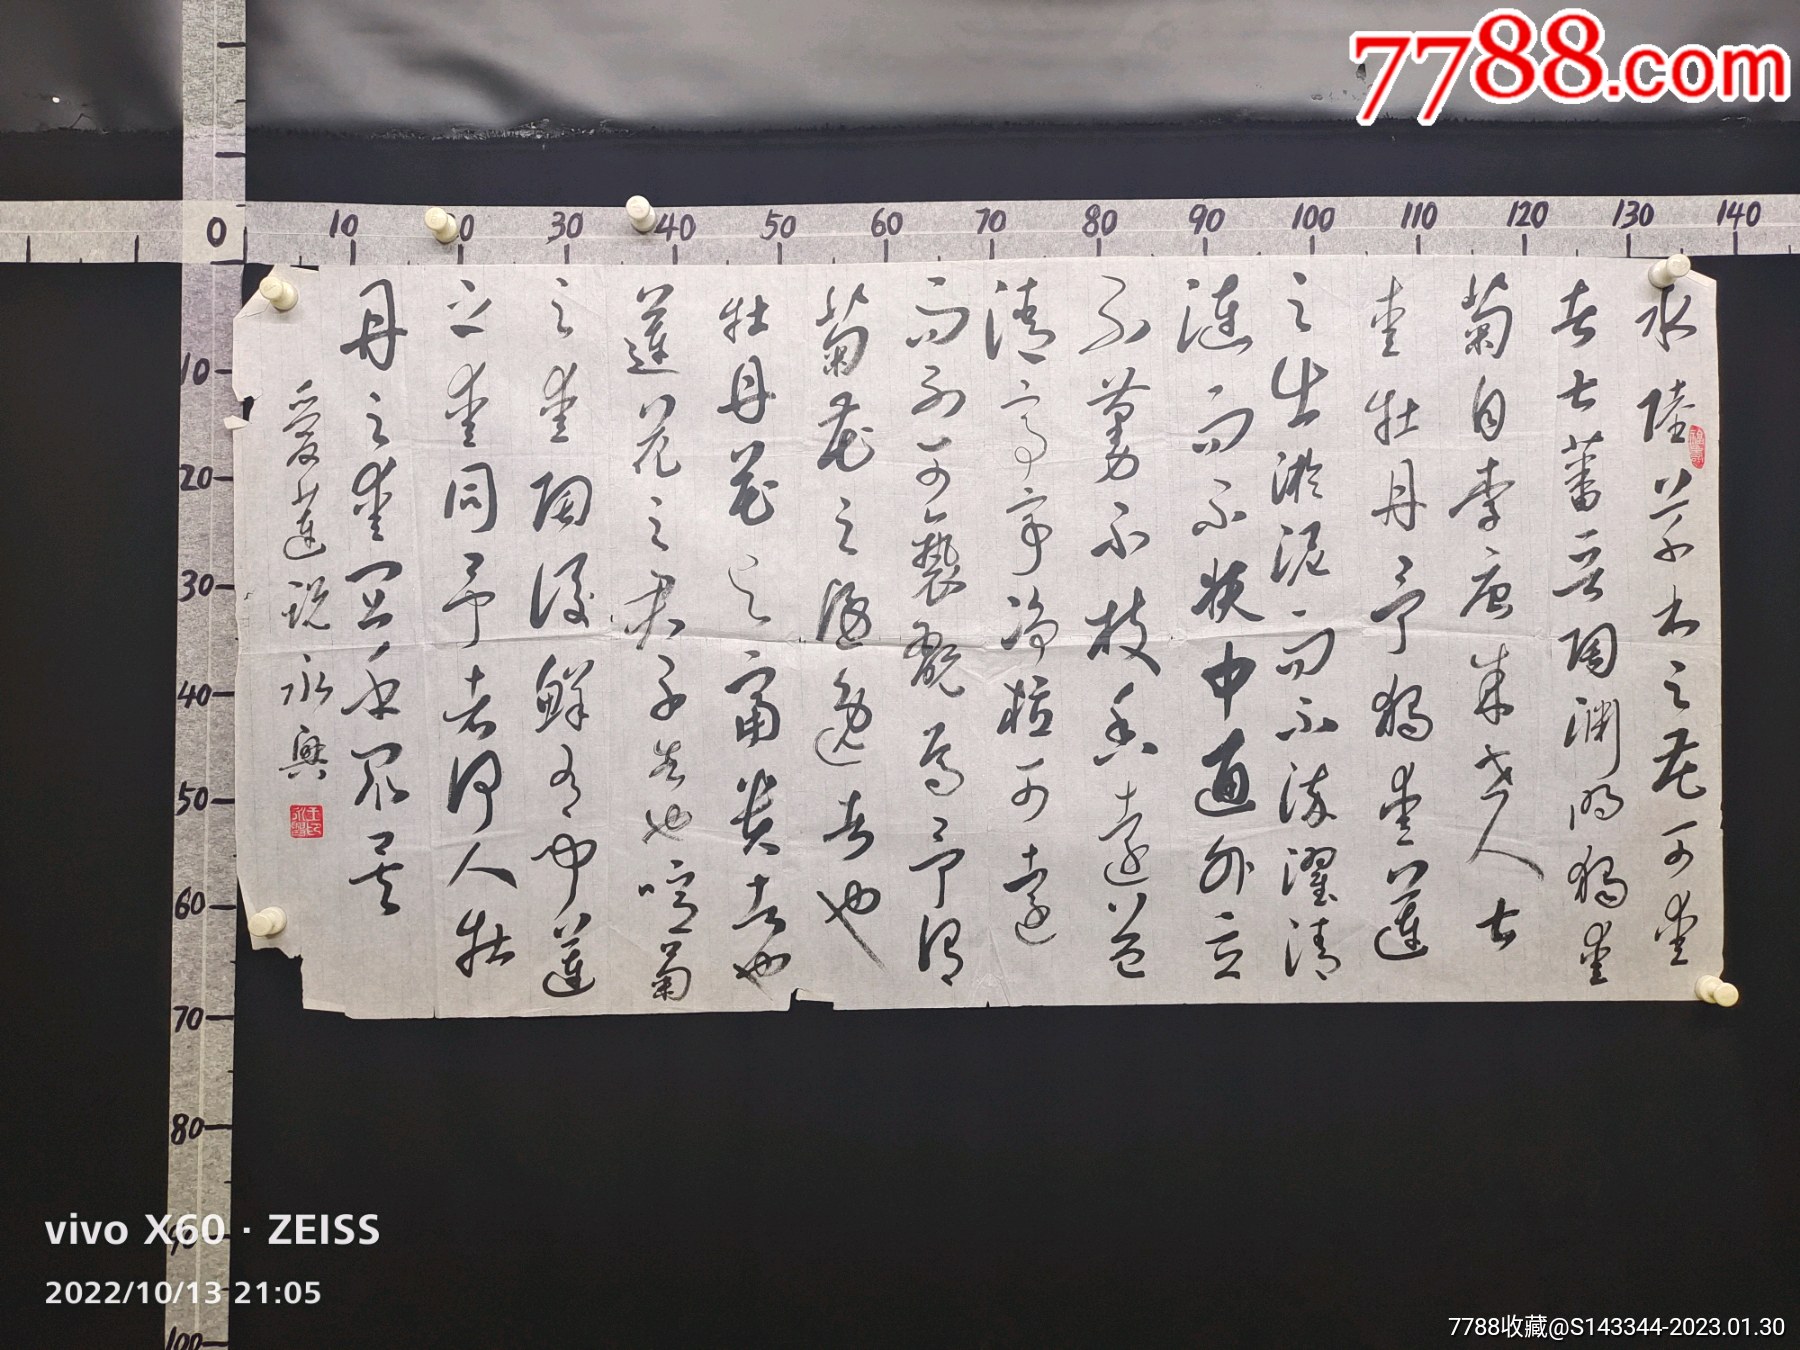 7788.com
0 10 20 30 40 50 60 70 80 90 100 110 120 130 140
水陸草木之花可愛
者甚蕃晉陶淵明獨愛
菊自李唐來世人甚
愛牡丹予獨愛蓮
之出淤泥而不染濯清
漣而不妖中通外立
不蔓不枝香遠益
清亭亭净植可遠
而不可褻翫焉予謂
菊花之隱逸者也
牡丹花之富貴者也
蓮花之君子者也噫菊
之愛陶後鮮有聞蓮
之愛同予者何人牡
丹之愛宜乎眾矣
愛蓮說永興
10
20
30
40
50
60
70
80
90
100
vivo X60 · ZEISS
2022/10/13 21:05
7788收藏@S143344-2023.01.30